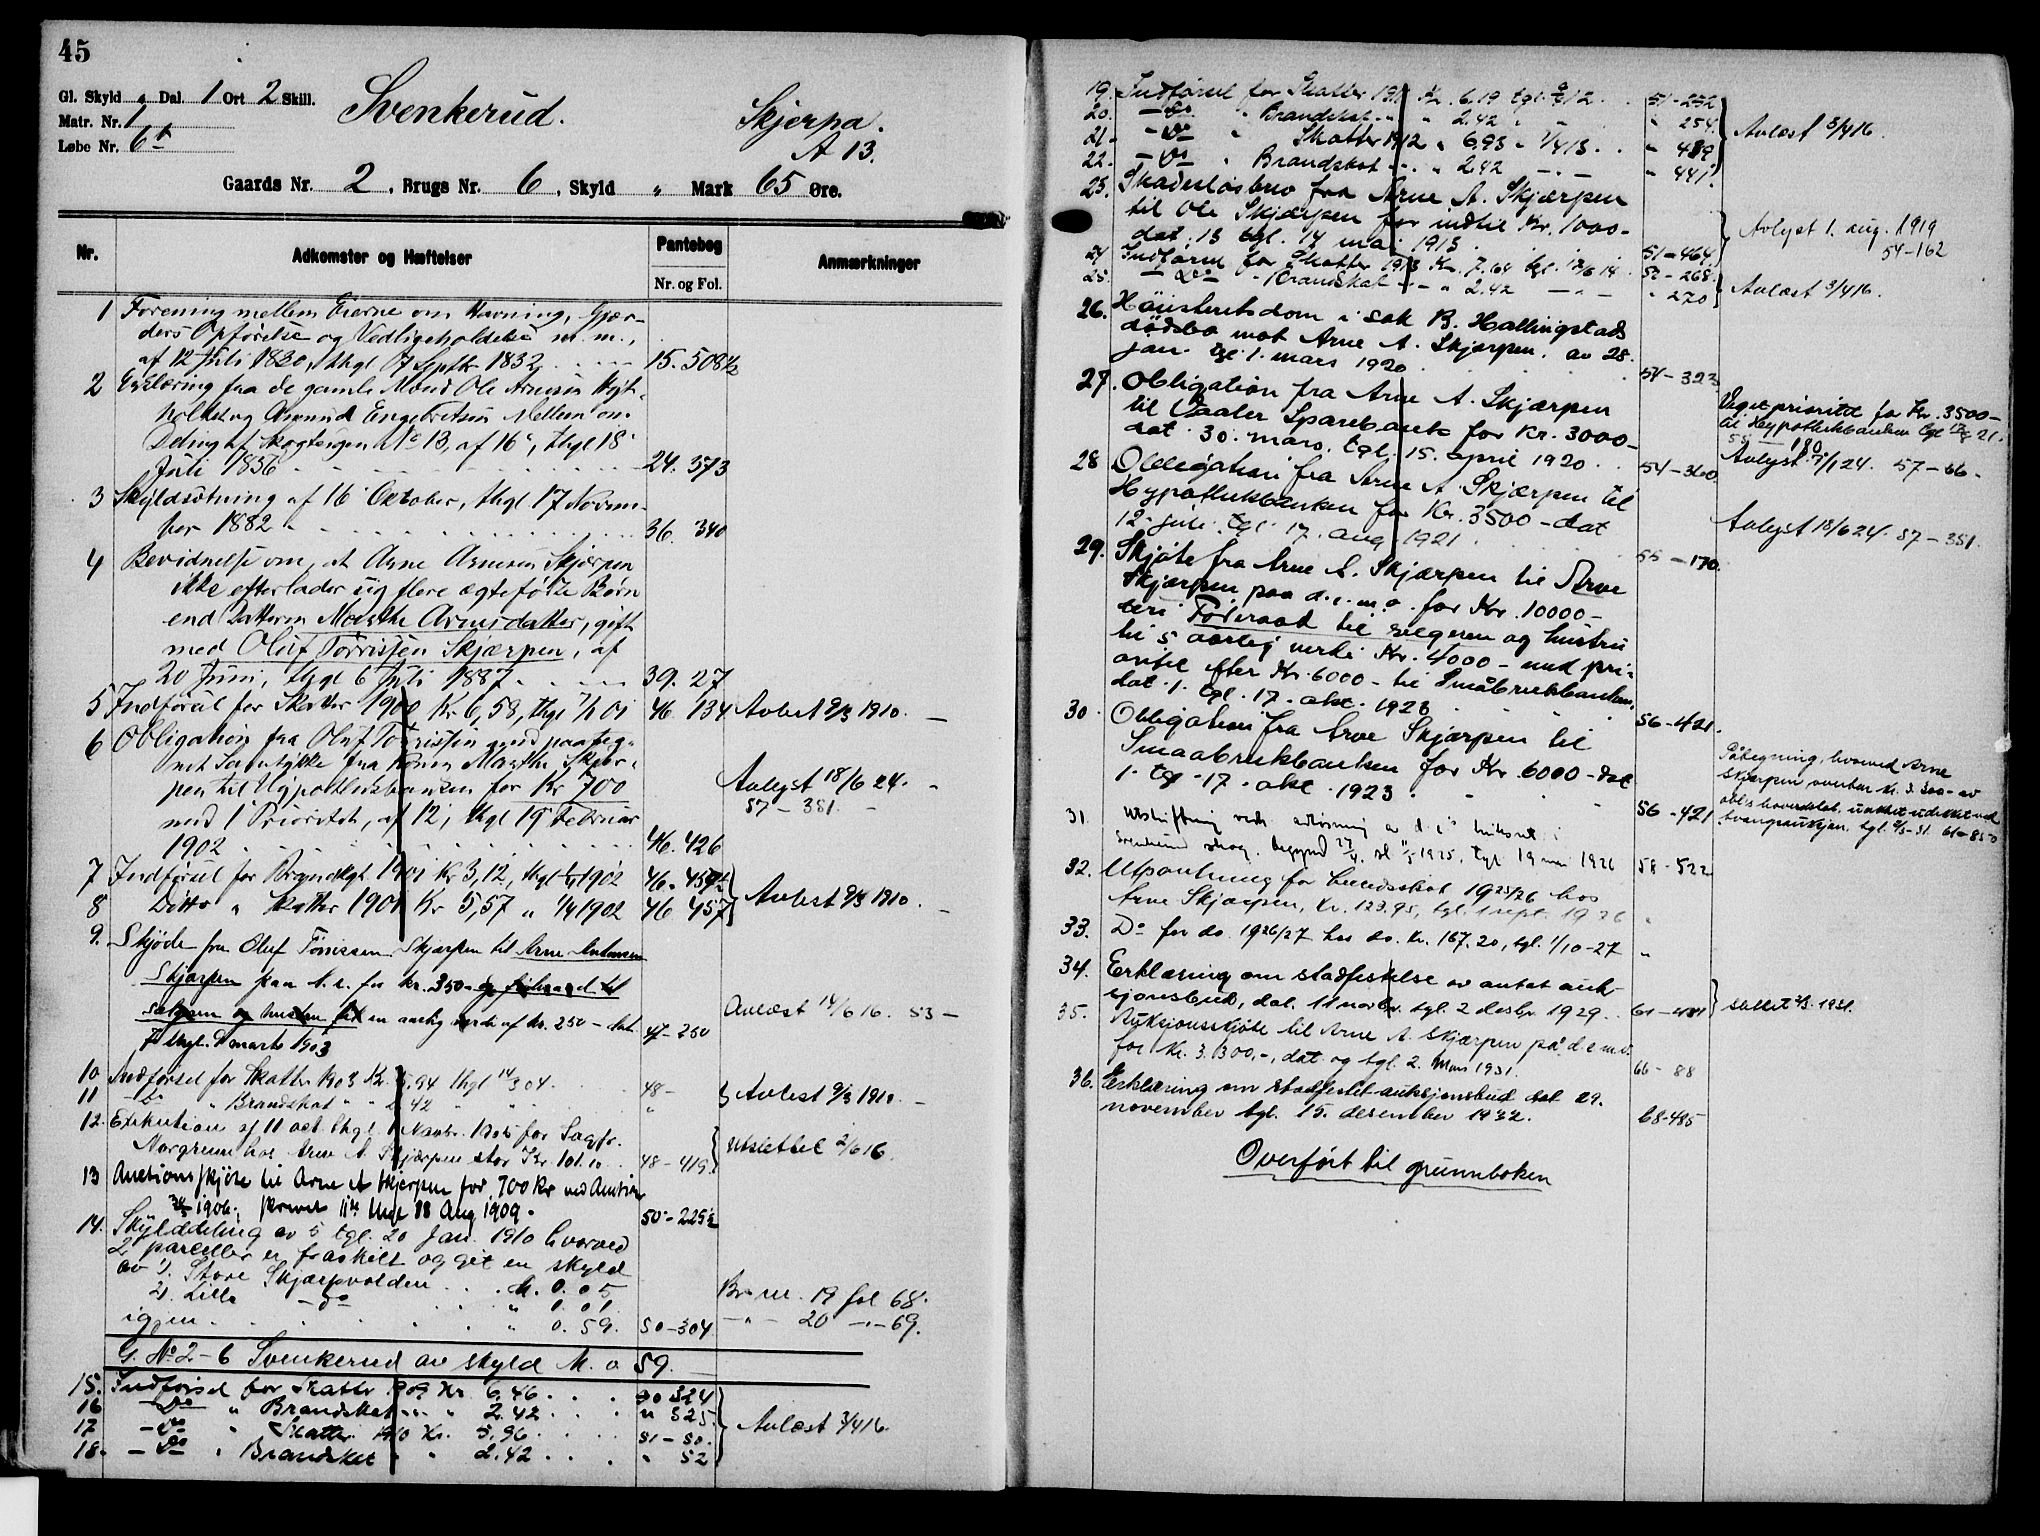 45
Gl. Skyld " Dal. 1 Ort 2 Skill.
Matr. Nr. 1
Løbe Nr. 6
Svenkerud.
Skjerpa.
A 13.
Gaards Nr. 2, Brugs Nr. 6, Skyld " Mark 65 Øre.
Nr. Adkomster og Hæftelser Pantebog Nr. og Fol. Anmærkninger
1 Forening mellem Eierne om Havning, Gjær-
ders Opførelse og Vedligeholdelse m.m.,
af 12 Juli 1830, thgl 17 Septbr 1832 15. 508½
2 Erklæring fra de gamle Mænd Ole Arnesen
og Engebretsen Mellem om
Deling af Skogteigen No 13, af 16, thgl 18
Juli 1856 24. 573
3 Skyldsætning af 16 Oktober, thgl 17 Novem-
ber 1882 36. 340
4 Bevidnelse om, at Arne Arnesen Skjærpen
ikke efterlader sig flere ægtefødte Børn
end Datteren Marthe Arnesdatter, gift
med Oluf Tørrissen Skjærpen, af
20 Juni, thgl 6 Juli 1887 39. 27
5 Indførsel for Skatter 1900 Kr 6,58, thgl 7/1 01 46. 134 Avlest 9/3 1910. —
6 Obligation fra Oluf Tørrissen med paateg-
net Samtykke fra Konen Marthe Skjær-
pen til Hypothekbanken for Kr 700
med 1 Prioritet, af 12, thgl 19 Februar
1902 46. 426
Avlyst 18/6 24.
57 – 351. –
7 Indførsel for Brandkgt 1901 Kr 3,12, thgl 1/4 1902 46. 457½
8 Ditto " Skatter 1901 Kr 5,57 " 1/4 1902 46 457
Avlest 9/3 1910. –
9. Skjøde fra Oluf Tørrissen Skjærpen til Arne Antonsen
Skjærpen paa d. e. for Kr. 350 – og føderaad til
sælgeren og hustru til en aarlig værdi af Kr. 250 – dat.
thgl. marts 1903 47 – 250
Avlæst 14/6 16. 53 –
10 Indførsel for Skatter 1903 Kr. 5.94 thgl 14/3 04 48 –
11 Do " Brandskat " " 2.42 "
Avlest 9/3 1910. –
12. Exekution af 11 oct. thgl. 1 Novbr. for Sagfr.
Norgrenn hos Arne A. Skjærpen stor Kr. 101.10 48 – 419
Utslettet 2/6 16.
13 Auctionsskjøte til Arne A Skjerpen for 700 Kr ved Auction
1906., skrevet thgl 18 Aug 1909. 50 – 225½
14. Skylddeling av 5 tgl. 20 Jan. 1910 hvorved
2 parceller er fraskilt og git en skyld
av 1). Store Skjærpvolden . . M. 0.05 Br.nr. 19 fol 68.
2). Lille — do — " 0.01. —"— 20 —"— 69.
igjen " 0.59. 50 – 304
G. No 2 – 6 Svenkerud av skyld M. 0 59.
15. Indførsel for Skatter 1909 Kr. 6.46 50 324
16 Do " Brandskat " " 2.42 " 325
17 – Do " Skatter 1910 Kr. 5.96 51 – 50.
18. – Do " Brandskat " 2.42 " 52
Avlæst 3/4 16.
19. Indførsel for Skatter 1911 Kr. 6.19 tgl. 12 51 – 252
20. – Do " Brandskat " " 2.42 " 254.
21 – – Do " Skatter 1912 " 6.93 " 1/4 13 " 439
22. – Do " Brandskat " " 2.42 " 441.
Avlæst 3/4 16.
23. Skadesløsbrev fra Arne A. Skjærpen
til Ole Skjærpen for indtil Kr. 1000 –
dat. 13 tgl. 14 mai 1913. 51 – 464.
Avlyst 1. aug. 1919
54 – 162
24 Indførsel for Skatter 1913 Kr. 7.64 tgl. 12/6 14 52 – 268
25. – Do " Brandskat " 2.42 " 270
Avlæst 3/4 16.
26. Høiesteretsdom i sak B. Hallingstads
dødsbo mot Arne A. Skjærpen, av 28.
jan. tgl. 1. mars 1920 54 – 323
27. Obligation fra Arne A. Skjærpen
til Vaaler Sparebank for Kr. 3000 –
dat. 30. mars. tgl. 15. april 1920 54 – 360
Veget prioritet for Kr. 3500 –
til Hypothekbanken tgl 21.
55 – 180
Avlyst 24. 57 – 66 –
28 Obligation fra Arne A. Skjærpen til
Hypothekbanken for Kr. 3500 – dat
12. juli. tgl. 17. aug 1921. 55 – 170
Avlyst 18/6 24. 57 – 351.
29. Skjøte fra Arne A. Skjærpen til Arne
Skjærpen paa d. e. m. o. for Kr. 10000 –
deri Føderaad til selgeren og hustru
til 5 aarlig verdi Kr. 4000 – med pri-
oritet efter Kr. 6000 – til Småbrukbanken
dat. 1. tgl. 17. okt. 1923 56 – 421.
30. Obligation fra Arne Skjærpen til
Smaabrukbanken for Kr. 6000 – dat
1. tgl. 17. okt. 1923 56 – 421
Påtegning, hvorved Arne
Skjærpen overtar kr. 3.300 – av
obl.s hovedstol, tgl. 61 – 85
31. Utskiftning vedk. avløsning av d. e's bruksret i
Svenkerud skog. 1925, tgl 19 mai 1926 58 – 522
32. Utpantning for herredsskat 1925/26 hos
Arne Skjærpen, Kr. 123.95, tgl. 1 sept. 1926 "
33. Do for do. 1926/27 hos do. Kr. 167.20, tgl. 1/10 – 27 "
34. Erklæring om stadfestelse av antat auk-
sjonsbud, dat. 11 novbr. tgl. 2 desbr. 1929. 61 – 431
slettet 2/3 1931.
35. Auksjonsskjøte til Arne A. Skjærpen på d. e. m. v.
for Kr. 3.300,–, dat. og tgl. 2. Mars 1931. 66 – 88
36. Erklæring om stadfestet auksjonsbud dat 29.
november tgl. 15. desember 1932. 68 – 485
Overført til grunnboken